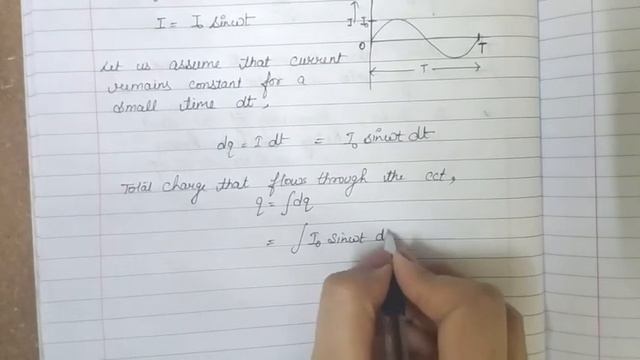 I = I₀ sinωt
I I₀
0 T
T
Let us assume that current
remains constant for a
small time dt,
dq = I dt = I₀ sinωt dt
Total charge that flows through the cct,
q = ∫dq
= ∫ I₀ sinωt d